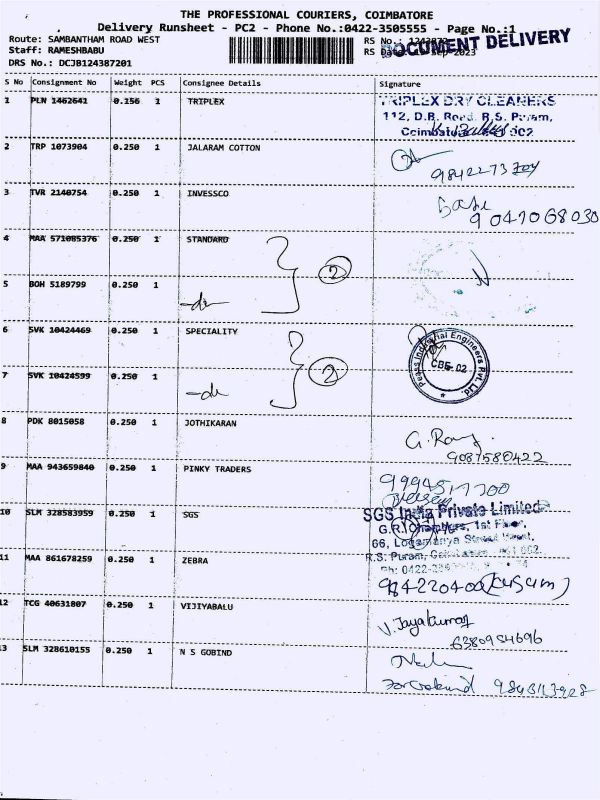 THE PROFESSIONAL COURIERS, COIMBATORE
Delivery Runsheet - PC2 - Phone No.:0422-3505555 - Page No.:1
Route: SAMBANTHAM ROAD WEST
Staff: RAMESHBABU
DRS No.: DCJB124387201
RS No.:
RS Sep-2023
DOCUMENT DELIVERY
S No Consignment No Weight PCS Consignee Details Signature
1 PLN 1462641 0.156 1 TRIPLEX
TRIPLEX DRY CLEANERS
112, D.B. Road, R.S. Puram,
2 TRP 1073904 0.250 1 JALARAM COTTON
3 TVR 2140754 0.250 1 INVESSCO
9047068030
4 MAA 571085376 0.250 1 STANDARD
2
5 BOH 5189799 0.250 1 -do
6 SVK 10424469 0.250 1 SPECIALITY
2
Industrial Engineers Pvt. Ltd.
CBE-02
7 SVK 10424599 0.250 1 -do
8 PDK 8015058 0.250 1 JOTHIKARAN
9087580422
9 MAA 943659840 0.250 1 PINKY TRADERS
10 SLM 328583959 0.250 1 SGS
SGS India Private Limited
G.R. 1st Floor,
66, Street West,
R.S. Puram,
Ph: 0422-
11 MAA 861678259 0.250 1 ZEBRA
12 TCG 40631807 0.250 1 VIJIYABALU
V. Jayakumar
6380954696
13 SLM 328610155 0.250 1 N S GOBIND